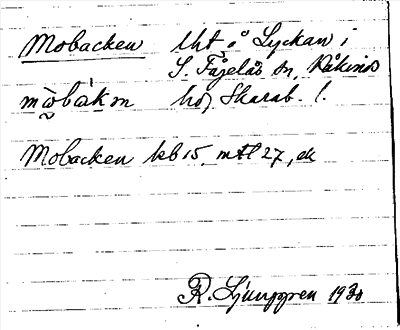 Mobacken tht å Lyckan i
S. Fågelås sn, Kåkinds
mòbàkən hd, Skarab. l.
Mobacken kb 15, mtl 27, ek
R. Ljunggren 1930